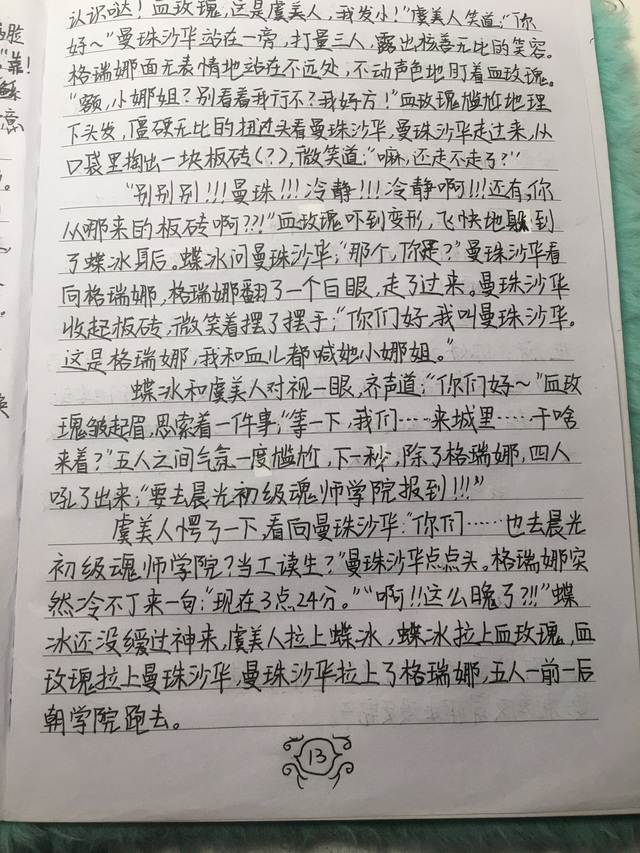 认识哒！血玫瑰，这是虞美人，我发小！”虞美人笑道：“你
好～”曼珠沙华站在一旁，打量三人，露出核善无比的笑容。
格瑞娜面无表情地站在不远处，不动声色地盯着血玫瑰。
“额，小娜姐？别看着我行不？我好方！”血玫瑰尴尬地理
下头发，僵硬无比的扭过头看曼珠沙华，曼珠沙华走过来，从
口袋里掏出一块板砖（？），微笑道：“嘛，还走不走了？”
“别别别！！！曼珠！！！冷静！！！冷静啊！！！还有，你
从哪来的板砖啊？？！”血玫瑰吓到变形，飞快地躲到
了蝶冰身后。蝶冰问曼珠沙华：“那个，你是？”曼珠沙华看
向格瑞娜，格瑞娜翻了一个白眼，走了过来。曼珠沙华
收起板砖，微笑着摆了摆手：“你们好，我叫曼珠沙华。
这是格瑞娜，我和血儿都喊她小娜姐。”
蝶冰和虞美人对视一眼，齐声道：“你们好～”血玫
瑰皱起眉，思索着一件事：“等一下，我们……来城里……干啥
来着？”五人之间气氛一度尴尬，下一秒，除了格瑞娜，四人
吼了出来：“要去晨光初级魂师学院报到！！！”
虞美人愕了一下，看向曼珠沙华：“你们……也去晨光
初级魂师学院？当工读生？”曼珠沙华点点头。格瑞娜突
然冷不丁来一句：“现在3点24分。”“啊！！这么晚了？！！”蝶
冰还没缓过神来，虞美人拉上蝶冰，蝶冰拉上血玫瑰，血
玫瑰拉上曼珠沙华，曼珠沙华拉上了格瑞娜，五人一前一后
朝学院跑去。
13